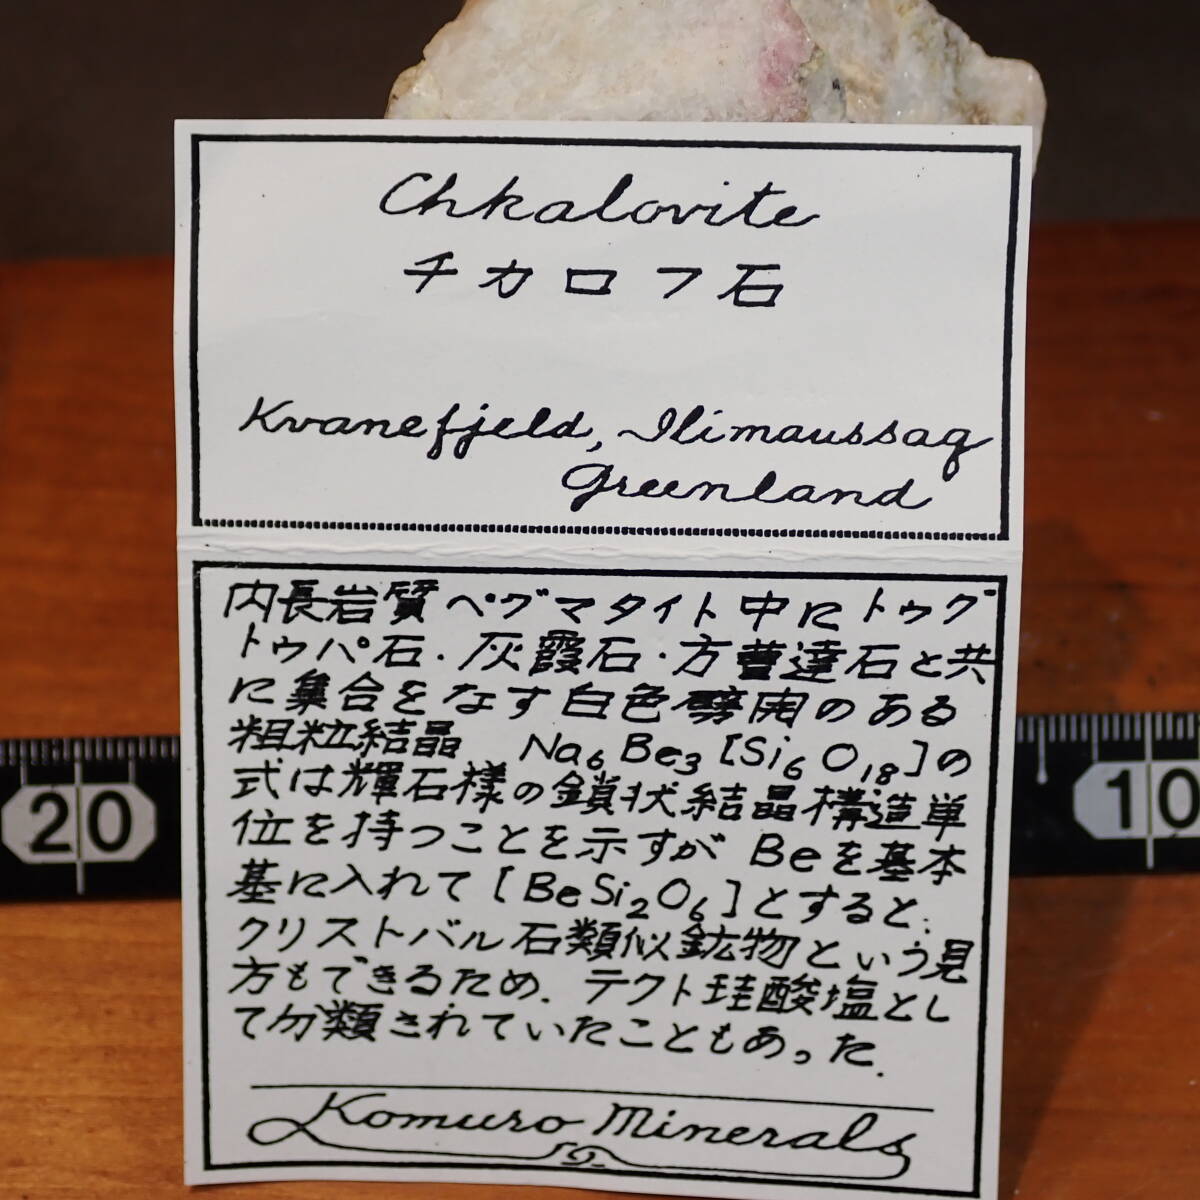 Chkalovite
チカロフ石
Kvanefjeld, Ilimaussaq
Greenland
内長岩質ペグマタイト中にトゥグ
トゥパ石・灰霞石・方曹達石と共
に集合をなす白色劈開のある
粗粒結晶 Na₆Be₃[Si₆O₁₈]の
式は輝石様の鎖状結晶構造単
位を持つことを示すがBeを基本
基に入れて[BeSi₂O₆]とすると、
クリストバル石類似鉱物という見
方もできるため、テクト珪酸塩とし
て分類されていたこともあった.
Komuro Minerals
20
10